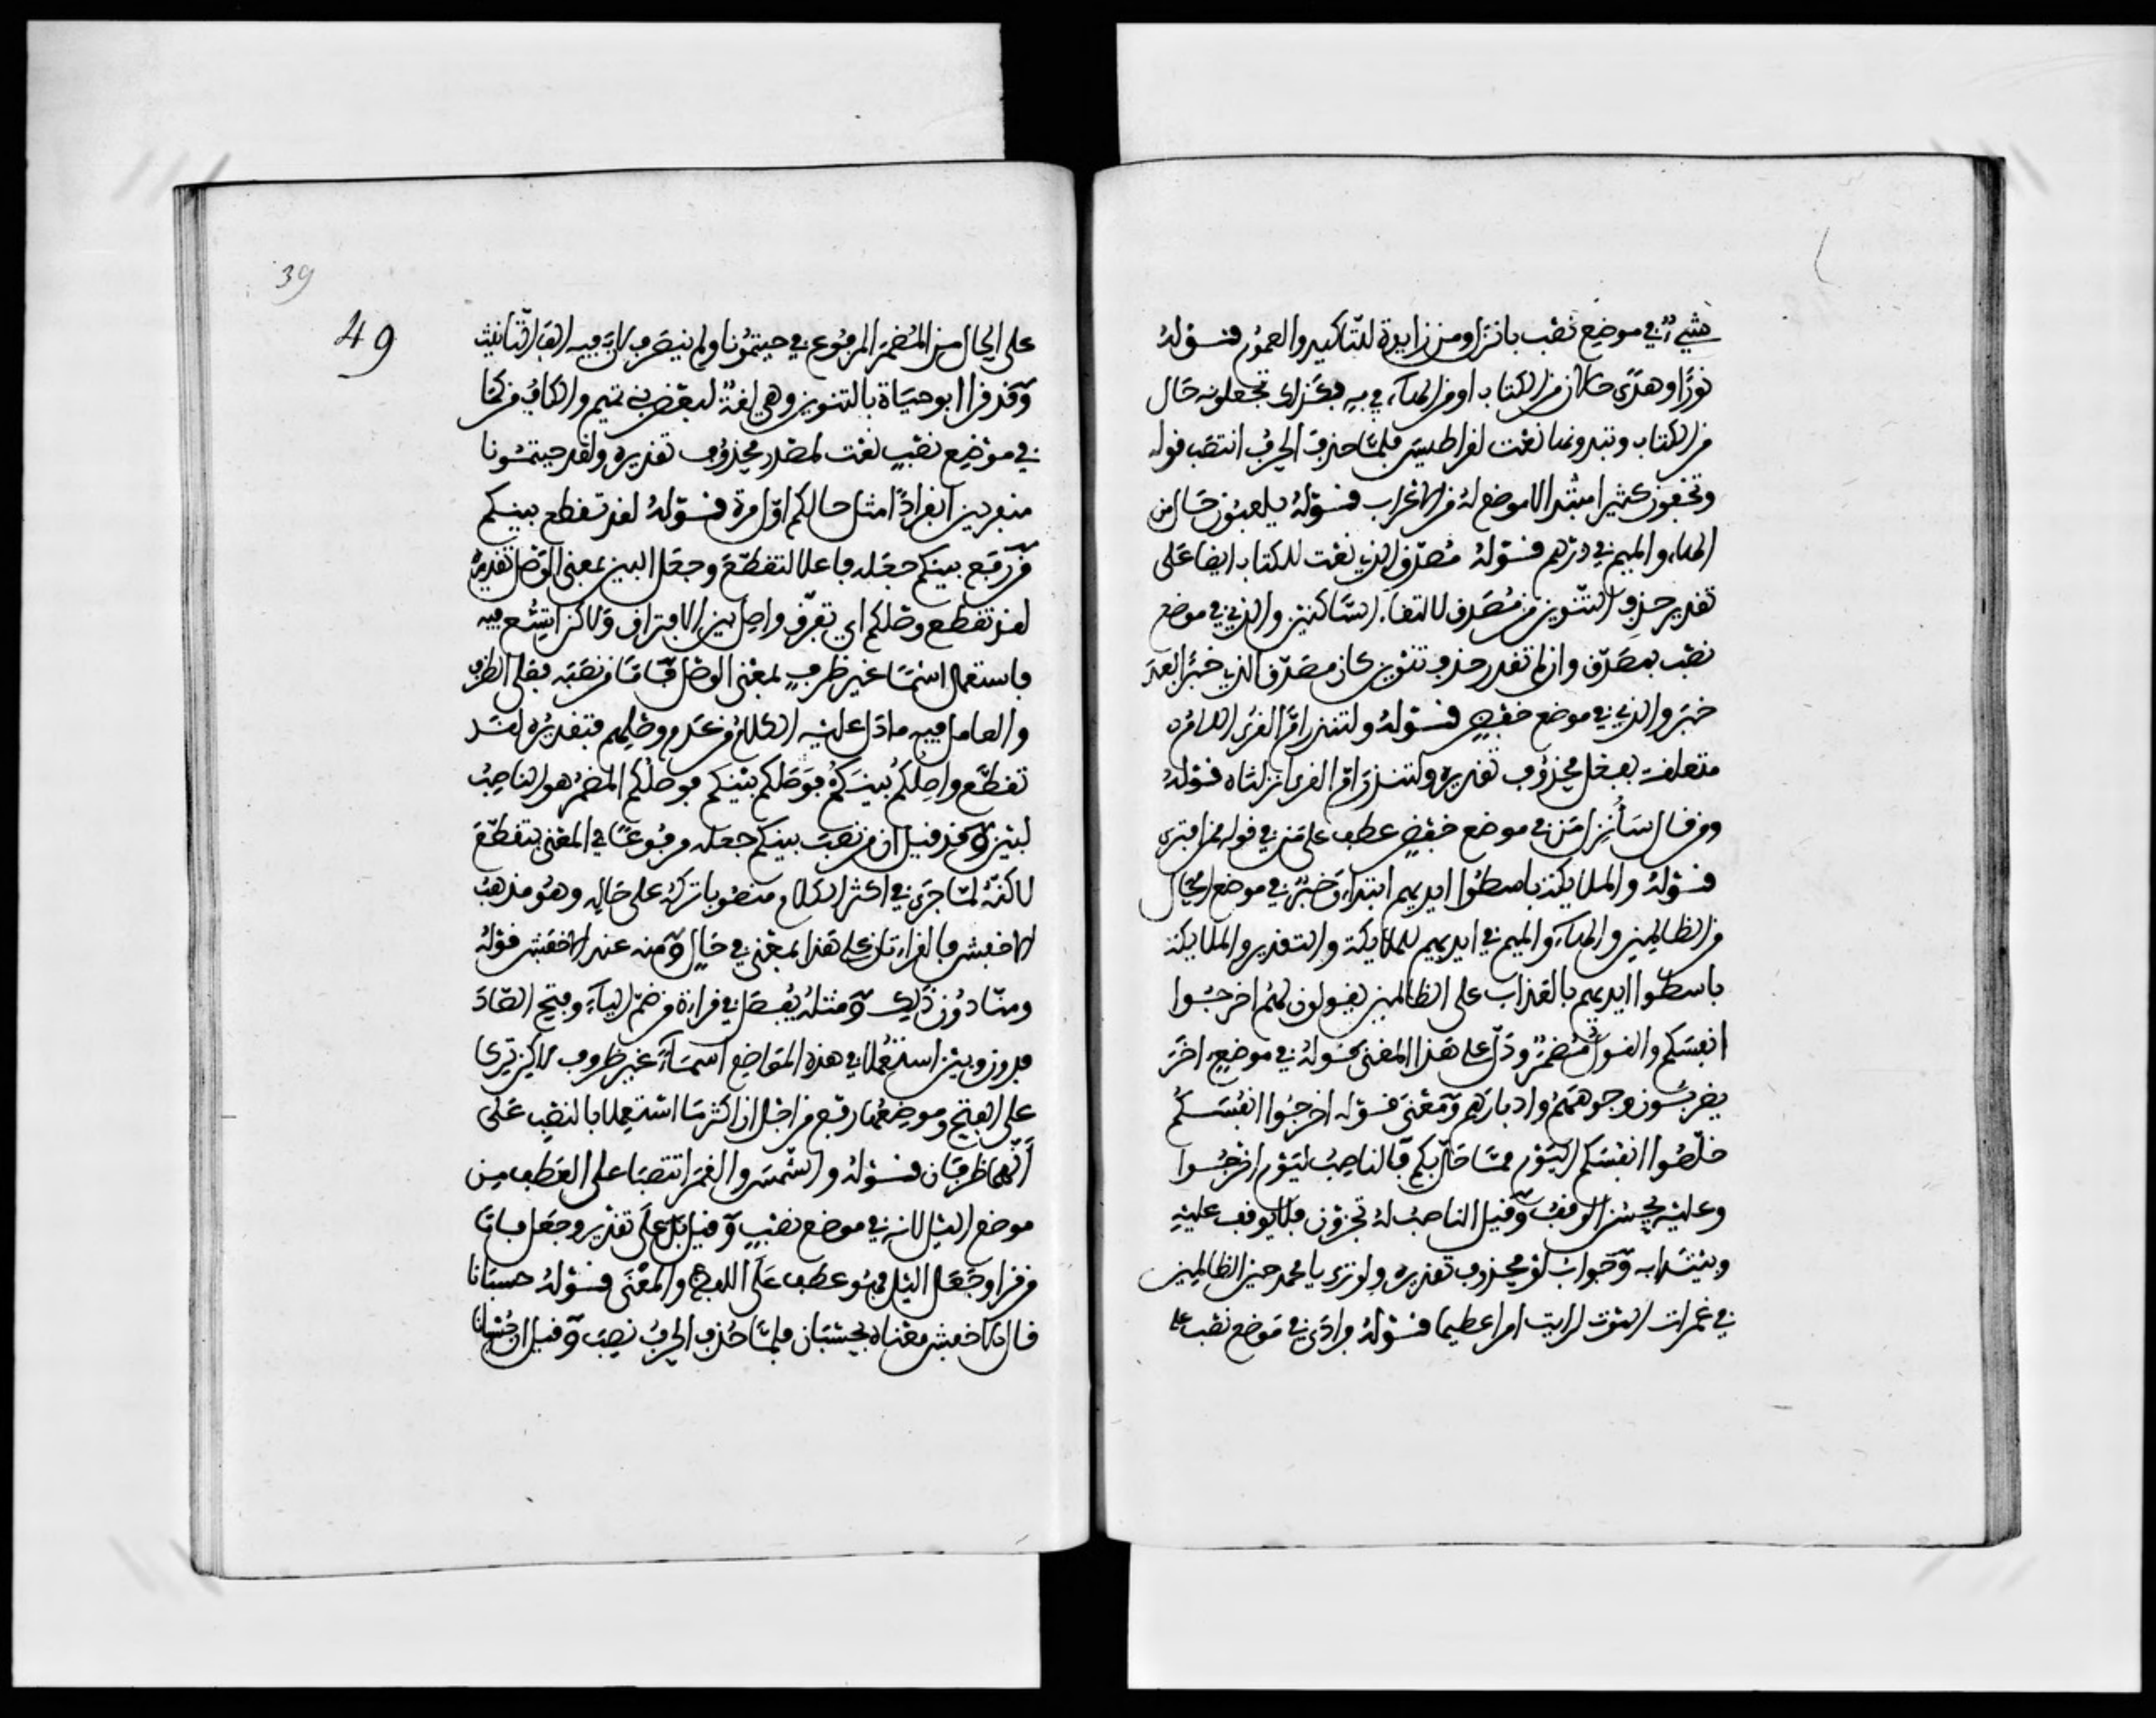 شيء في موضع نصب بانزل ومن زايدة للتاكيد والعموم قوله
نورا وهدى حالان من الكتاب او من الهاء في به فكذلك تجعلونه حال
من الكتاب وتبدونها نعت لقراطيس فلما حذف الحرف انتصب قوله
وتخفون كثيرا مبتدا لا موضع له من الاعراب قوله يلعبون حال من
الهاء والميم في ذرهم قوله مصدق الذي نعت للكتاب ايضا على
تقدير حذف التنوين من مصدق لالتقاء الساكنين والذي في موضع
نصب بمصدق وان لم تقدر حذف تنوين كان مصدق الذي خبرا بعد
خبر والذي في موضع خفض قوله ولتنذر ام القرى اللام
متعلقة بفعل محذوف تقديره ولتنذر ام القرى انزلناه قوله
ومن قال سأنزل من في موضع خفض عطف على من في قوله ممن افترى
قوله والملايكة باسطوا ايديهم ابتداء وخبر في موضع الحال
من الظالمين والهاء والميم في ايديهم للملايكة والتقدير والملايكة
باسطوا ايديهم بالعذاب على الظالمين يقولون لهم اخرجوا
انفسكم والقول مضمر ودل على هذا المعنى قوله في موضع اخر
يضربون وجوههم وادبارهم ومعنى قوله اخرجوا انفسكم
خلصوا انفسكم اليوم مما حل بكم فالناصب لليوم اخرجوا
وعليه يحسن الوقف وقيل الناصب له تجزون فلا يوقف عليه
ويبتدا به وجواب لو محذوف تقديره ولو ترى يا محمد حين الظالمين
في غمرات الموت لرايت امرا عظيما قوله فرادى في موضع نصب على
39
49
على الحال من المضمر المرفوع في جيتمونا ولم ينصرف لان فيه الف التانيث
وقد قرا ابو حياة بالتنوين وهي لغة لبعض بني تميم والكاف من كما
في موضع نصب نعت لمصدر محذوف تقديره ولقد جيتمونا
منفردين انفرادا مثل حالكم اول مرة قوله لقد تقطع بينكم
من رفع بينكم جعله فاعلا لتقطع وجعل البين بمعنى الوصل تقديره
لقد تقطع وصلكم اي تفرق واصل بين الافتراق ولاكن اتسع فيه
فاستعمل اسما غير ظرف بمعنى الوصل فاما من نصبه فعلى الظرف
والعامل فيه ما دل عليه الكلام من عدم وصلهم فتقديره لقد
تقطع واصلكم بينكم فوصلكم بينكم فوصلكم المضمر هو الناصب
لبين وقد قيل ان من نصب بينكم جعله مرفوعا في المعنى بتقطع
لاكنه لما جرى في اكثر الكلام منصوبا تركه على حاله وهو مذهب
الاخفش فالقراءتان على هذا بمعنى في حال ومنه عند الاخفش قوله
ومنا دون ذلك ومثله يفصل في قراءة من ضم الياء وفتح الصاد
فدون وبين استعملا في هذه المواضع اسماء غير ظروف لاكن ترى
على الفتح وموضعهما رفع من اجل ان اكثر ما استعملا بالنصب على
انهما ظرفان قوله والشمس والقمر انتصبا على العطف من
موضع الليل لانه في موضع نصب وقيل بل على تقدير وجعل فاما
من قرا وجعل الليل فهو عطف على اللفظ والمعنى قوله حسبانا
قال الاخفش معناه بحسبان فلما حذف الحرف نصب وقيل ان حسبانا